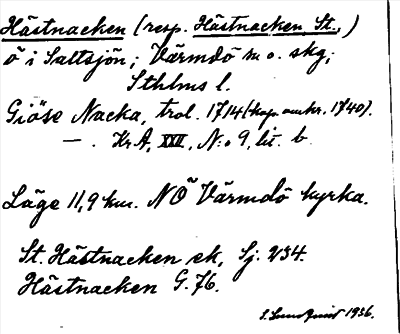 Hästnacken (resp. Hästnacken, St.,)
ö i Saltsjön; Värmdö sn o. skg;
Sthlms l.
Giöse Nacka, trol. 1714 (kop. omkr. 1740).
— . Kr A, XXII, N:o 9, lit. b
Läge 11,9 km. NO Värmdö kyrka.
St. Hästnacken ek, Sj. 234.
Hästnacken G. 76.
1936.